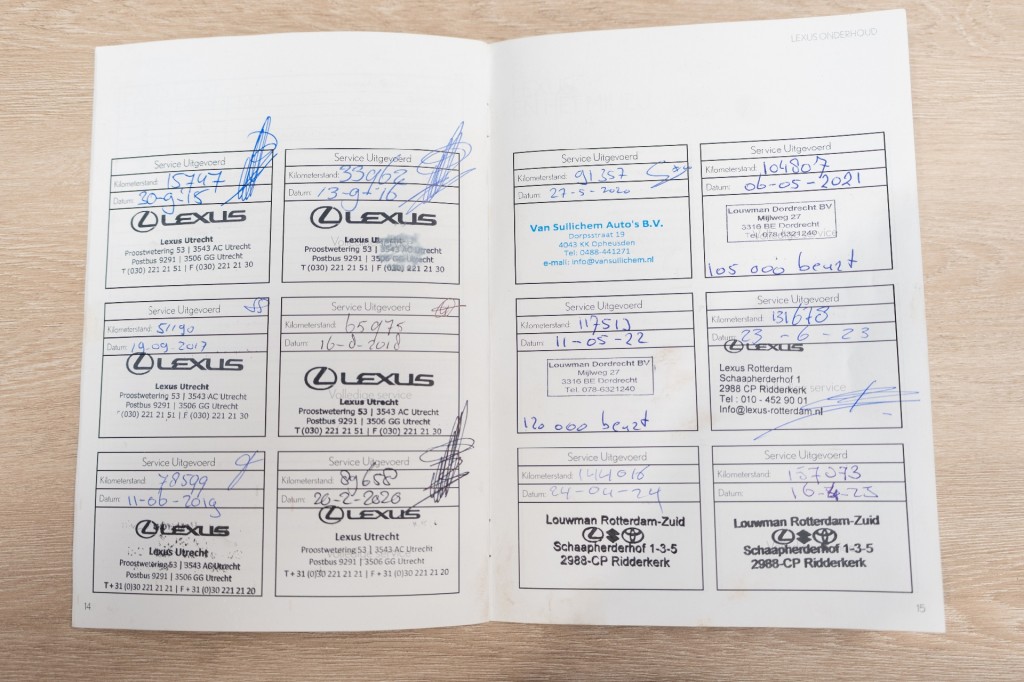 LEXUS ONDERHOUD
Service Uitgevoerd
Kilometerstand: 15747
Datum: 30-9-15
LEXUS
Lexus Utrecht
Proostwetering 53 | 3543 AC Utrecht
Postbus 9291 | 3506 GG Utrecht
T (030) 221 21 51 | F (030) 221 21 30
Service Uitgevoerd
Kilometerstand: 33962
Datum: 13-9-'16
LEXUS
Lexus Utrecht
Proostwetering 53 | 3543 AC Utrecht
Postbus 9291 | 3506 GG Utrecht
T (030) 221 21 51 | F (030) 221 21 30
Service Uitgevoerd
Kilometerstand: 51190
Datum: 19.09.2017
LEXUS
Lexus Utrecht
Proostwetering 53 | 3543 AC Utrecht
Postbus 9291 | 3506 GG Utrecht
T (030) 221 21 51 | F (030) 221 21 30
Service Uitgevoerd
Kilometerstand: 65975
Datum: 16-8-2018
LEXUS
Volledige service
Lexus Utrecht
Proostwetering 53 | 3543 AC Utrecht
Postbus 9291 | 3506 GG Utrecht
T (030) 221 21 51 | F (030) 221 21 30
Service Uitgevoerd
Kilometerstand: 78599
Datum: 11-06-2019
LEXUS
Lexus Utrecht
Proostwetering 53 | 3543 AC Utrecht
Postbus 9291 | 3506 GG Utrecht
T + 31 (0)30 221 21 21 | F + 31 (0)30 221 21 20
Service Uitgevoerd
Kilometerstand: 89658
Datum: 26-2-2020
LEXUS
Lexus Utrecht
Proostwetering 53 | 3543 AC Utrecht
Postbus 9291 | 3506 GG Utrecht
T + 31 (0)30 221 21 21 | F + 31 (0)30 221 21 20
14
Service Uitgevoerd
Kilometerstand: 91357
Datum: 27-5-2020
Van Sullichem Auto's B.V.
Dorpsstraat 19
4043 KK Opheusden
Tel: 0488-441271
e-mail: info@vansullichem.nl
Service Uitgevoerd
Kilometerstand: 104807
Datum: 06-05-2021
Louwman Dordrecht BV
Mijlweg 27
3316 BE Dordrecht
Tel. 078-6321240
service
105 000 beurt
Service Uitgevoerd
Kilometerstand: 117512
Datum: 11-05-22
Louwman Dordrecht BV
Mijlweg 27
3316 BE Dordrecht
Tel. 078-6321240
120 000 beurt
Service Uitgevoerd
Kilometerstand: 131678
Datum: 23-6-23
LEXUS
Lexus Rotterdam
Schaapherderhof 1
2988 CP Ridderkerk
service
Tel : 010 - 452 90 01
Info@lexus-rotterdam.nl
Service Uitgevoerd
Kilometerstand: 144016
Datum: 24-04-24
Louwman Rotterdam-Zuid
Schaapherderhof 1-3-5
2988-CP Ridderkerk
Service Uitgevoerd
Kilometerstand: 157073
Datum: 16-4-25
Louwman Rotterdam-Zuid
Schaapherderhof 1-3-5
2988-CP Ridderkerk
15